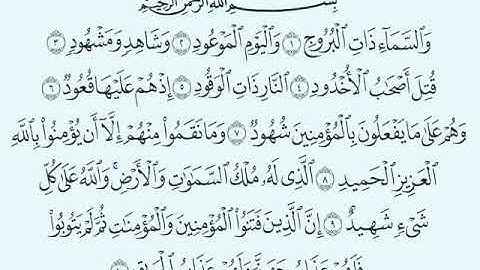 بِسْمِ اللَّهِ الرَّحْمَٰنِ الرَّحِيمِ
وَالسَّمَآءِ ذَاتِ الْبُرُوجِ ١ وَالْيَوْمِ الْمَوْعُودِ ٢ وَشَاهِدٍ وَمَشْهُودٍ ٣
قُتِلَ أَصْحَابُ الْأُخْدُودِ ٤ النَّارِ ذَاتِ الْوَقُودِ ٥ إِذْ هُمْ عَلَيْهَا قُعُودٌ ٦
وَهُمْ عَلَىٰ مَا يَفْعَلُونَ بِالْمُؤْمِنِينَ شُهُودٌ ٧ وَمَا نَقَمُوا مِنْهُمْ إِلَّا أَن يُؤْمِنُوا بِاللَّهِ
الْعَزِيزِ الْحَمِيدِ ٨ الَّذِي لَهُ مُلْكُ السَّمَاوَاتِ وَالْأَرْضِ ۚ وَاللَّهُ عَلَىٰ كُلِّ
شَيْءٍ شَهِيدٌ ٩ إِنَّ الَّذِينَ فَتَنُوا الْمُؤْمِنِينَ وَالْمُؤْمِنَاتِ ثُمَّ لَمْ يَتُوبُوا